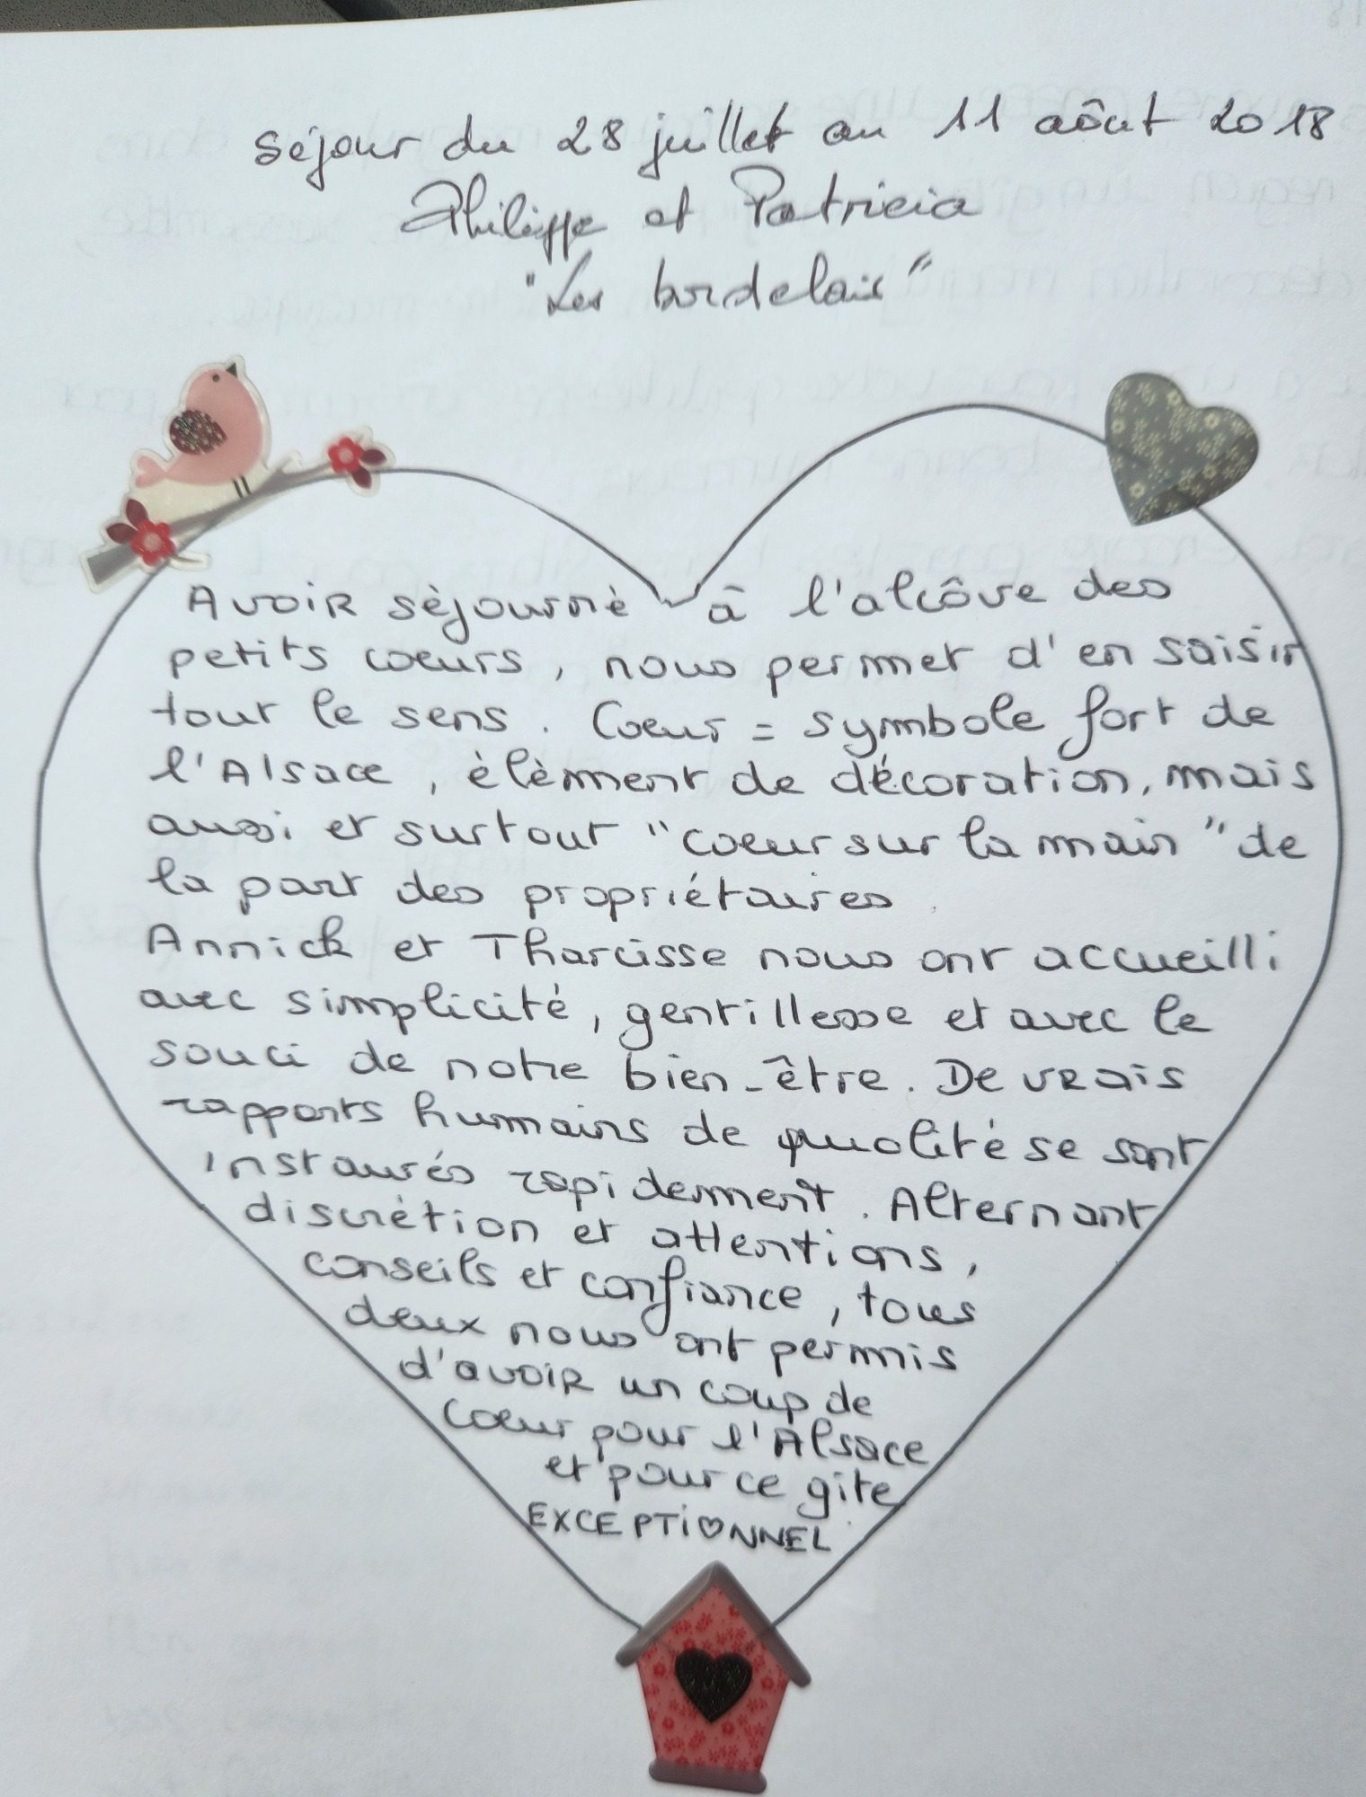 séjour du 28 juillet au 11 aôut 2018
Philippe et Patricia
"Les bordelais"
Avoir séjourné à l'alcôve des
petits coeurs, nous permet d'en saisir
tout le sens. Coeur = symbole fort de
l'Alsace, élèment de décoration, mais
aussi et surtout "coeur sur la main" de
la part des propriétaires.
Annick et Tharcisse nous ont accueilli
avec simplicité, gentillesse et avec le
souci de notre bien-être. De vrais
rapports humains de qualité se sont
instaurés rapidement. Alternant
discrétion et attentions,
conseils et confiance, tous
deux nous ont permis
d'avoir un coup de
coeur pour l'Alsace
et pour ce gite
EXCEPTIONNEL.